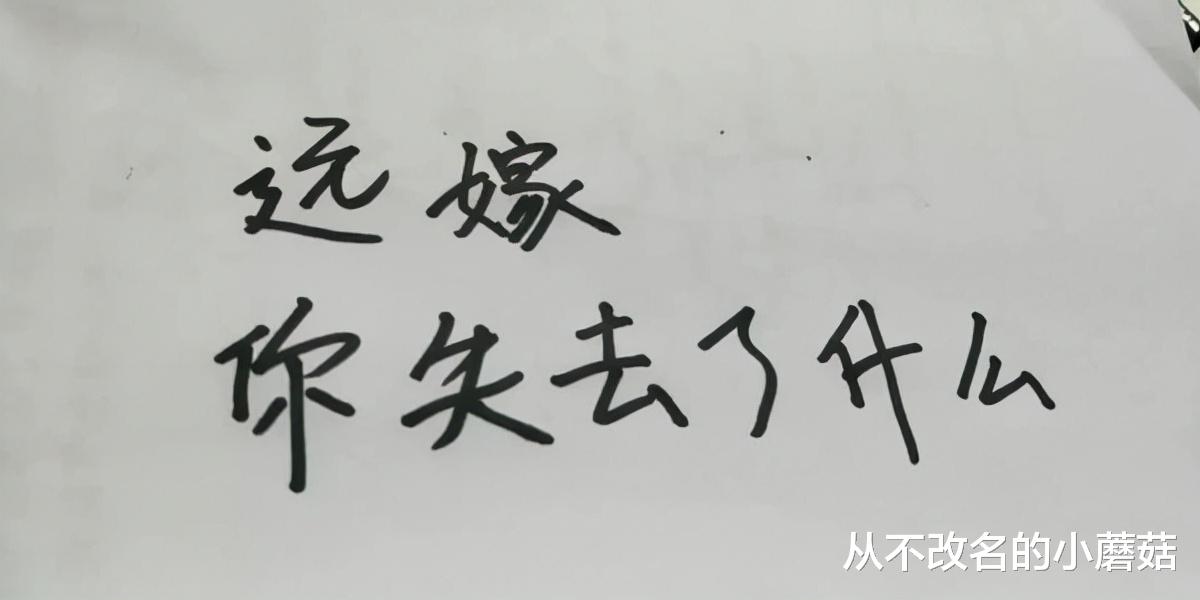 远嫁
你失去了什么
从不改名的小蘑菇